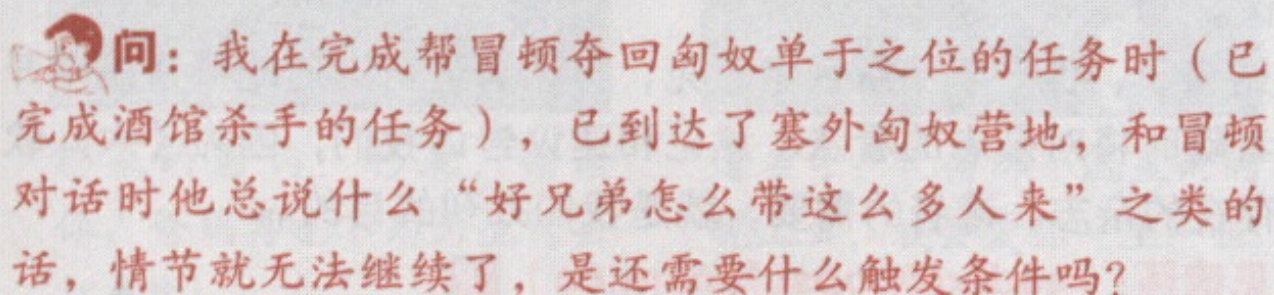 问：我在完成帮冒顿夺回匈奴单于之位的任务时（已
完成酒馆杀手的任务），已到达了塞外匈奴营地，和冒顿
对话时他总说什么“好兄弟怎么带这么多人来”之类的
话，情节就无法继续了，是还需要什么触发条件吗？